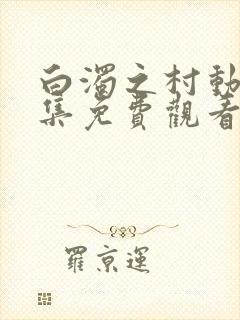 白濁之村動
集免費觀看
羅京運